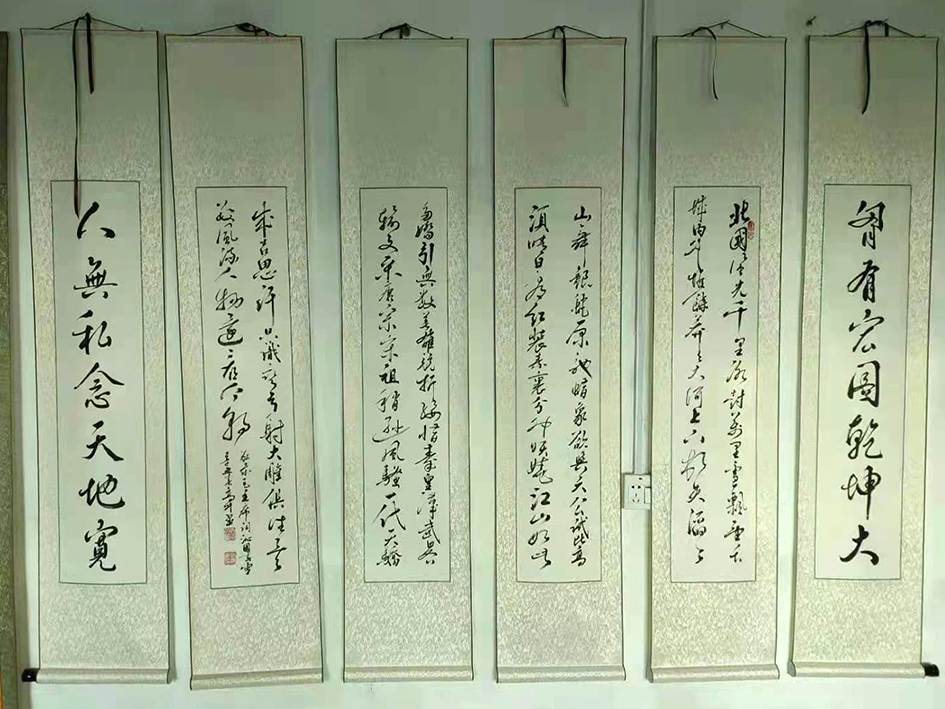 胷有宏圖乾坤大
北國風光千里冰封萬里雪飄望長
城内外惟餘莽莽大河上下頓失滔滔
山舞銀蛇原馳蜡象欲與天公試比高
須晴日看紅裝素裹分外妖嬈江山如此
多嬌引無數英雄競折腰惜秦皇漢武畧
輸文采唐宗宋祖稍遜風騷一代天驕
成吉思汗只識彎弓射大雕俱往矣
數風流人物還看今朝
毛主席词沁園春雪
人無私念天地寬